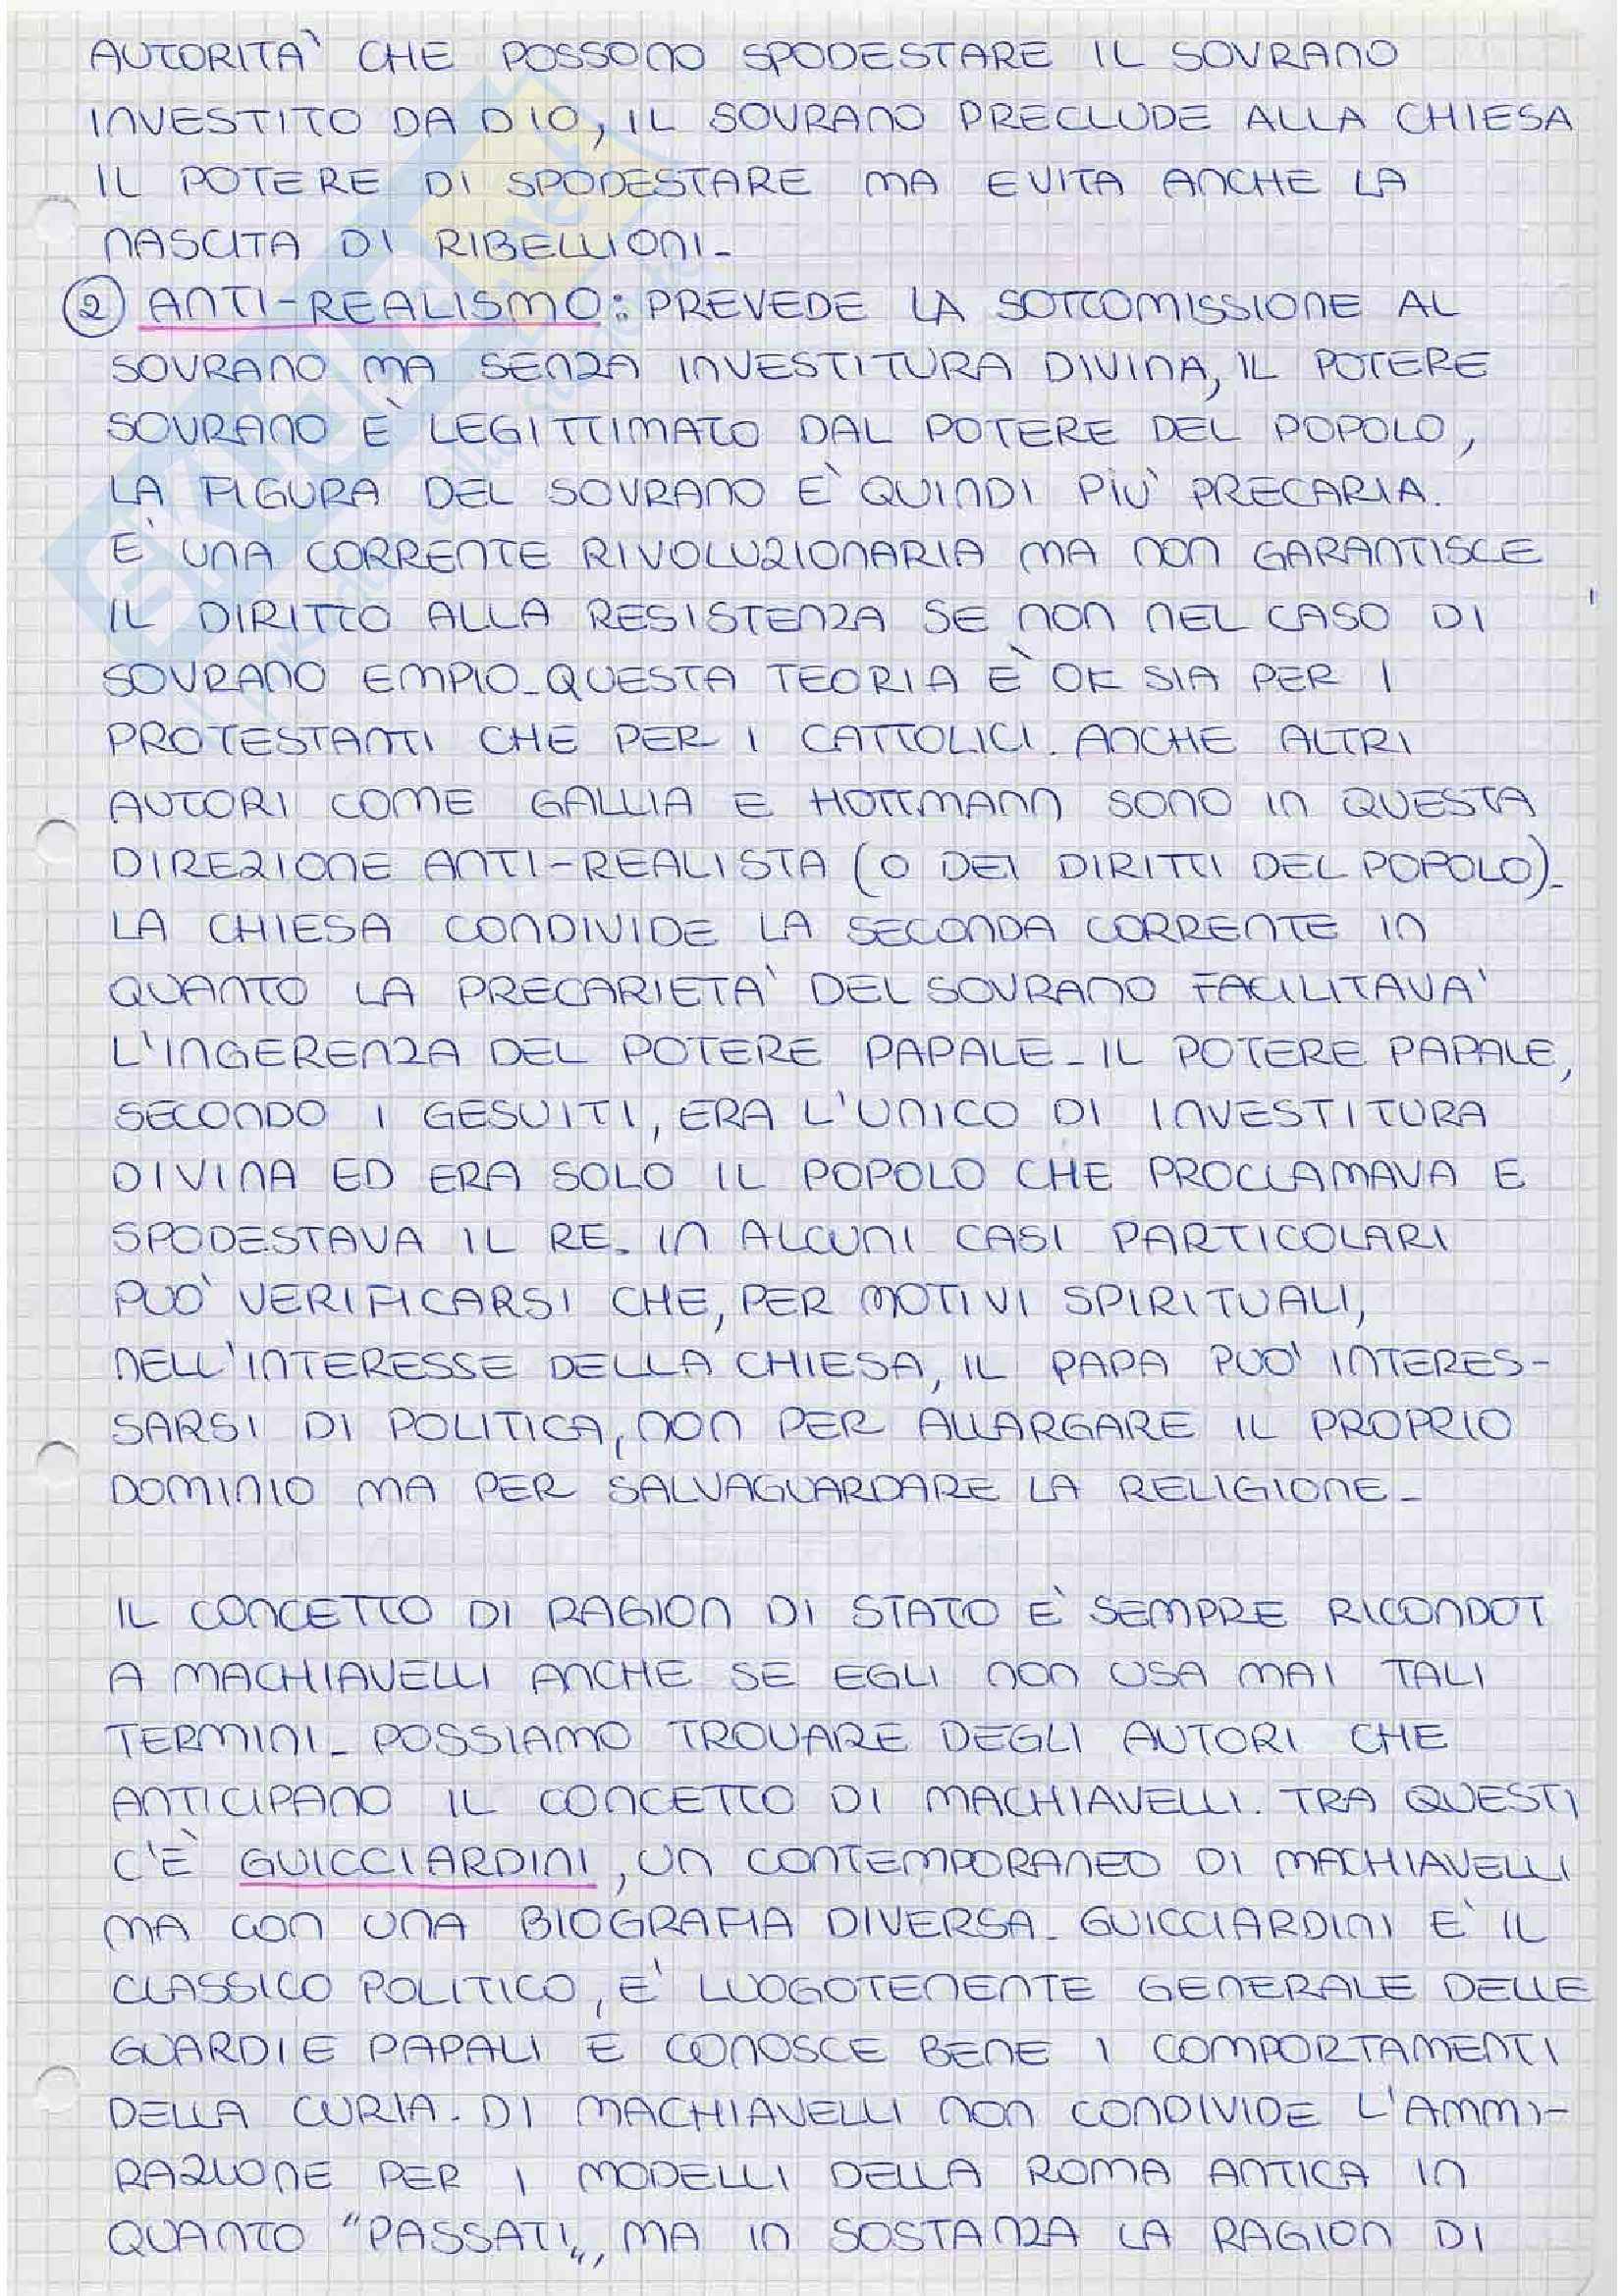 AUTORITA' CHE POSSONO SPODESTARE IL SOVRANO
INVESTITO DA DIO, IL SOVRANO PRECLUDE ALLA CHIESA
IL POTERE DI SPODESTARE MA EVITA ANCHE LA
NASCITA DI RIBELLIONI_
② ANTI-REALISMO: PREVEDE LA SOTTOMISSIONE AL
SOVRANO MA SENZA INVESTITURA DIVINA, IL POTERE
SOVRANO E' LEGITTIMATO DAL POTERE DEL POPOLO,
LA FIGURA DEL SOVRANO E' QUINDI PIU' PRECARIA.
E' UNA CORRENTE RIVOLUZIONARIA MA NON GARANTISCE
IL DIRITTO ALLA RESISTENZA SE NON NEL CASO DI
SOVRANO EMPIO_QUESTA TEORIA E' OK SIA PER I
PROTESTANTI CHE PER I CATTOLICI. ANCHE ALTRI
AUTORI COME GALLIA E HOTTMANN SONO IN QUESTA
DIREZIONE ANTI-REALISTA (O DEI DIRITTI DEL POPOLO)_
LA CHIESA CONDIVIDE LA SECONDA CORRENTE IN
QUANTO LA PRECARIETA' DEL SOVRANO FACILITAVA'
L'INGERENZA DEL POTERE PAPALE_IL POTERE PAPALE,
SECONDO I GESUITI, ERA L'UNICO DI INVESTITURA
DIVINA ED ERA SOLO IL POPOLO CHE PROCLAMAVA E
SPODESTAVA IL RE. IN ALCUNI CASI PARTICOLARI
PUO' VERIFICARSI CHE, PER MOTIVI SPIRITUALI,
NELL'INTERESSE DELLA CHIESA, IL PAPA PUO' INTERES-
SARSI DI POLITICA, NON PER ALLARGARE IL PROPRIO
DOMINIO MA PER SALVAGUARDARE LA RELIGIONE_
IL CONCETTO DI RAGION DI STATO E' SEMPRE RICONDOT
A MACHIAVELLI ANCHE SE EGLI NON USA MAI TALI
TERMINI_ POSSIAMO TROVARE DEGLI AUTORI CHE
ANTICIPANO IL CONCETTO DI MACHIAVELLI. TRA QUESTI
C'È GUICCIARDINI, UN CONTEMPORANEO DI MACHIAVELLI
MA CON UNA BIOGRAFIA DIVERSA_ GUICCIARDINI E' IL
CLASSICO POLITICO, E' LUOGOTENENTE GENERALE DELLE
GUARDIE PAPALI E CONOSCE BENE I COMPORTAMENTI
DELLA CURIA. DI MACHIAVELLI NON CONDIVIDE L'AMMI-
RAZIONE PER I MODELLI DELLA ROMA ANTICA IN
QUANTO "PASSATI", MA IN SOSTANZA LA RAGION DI